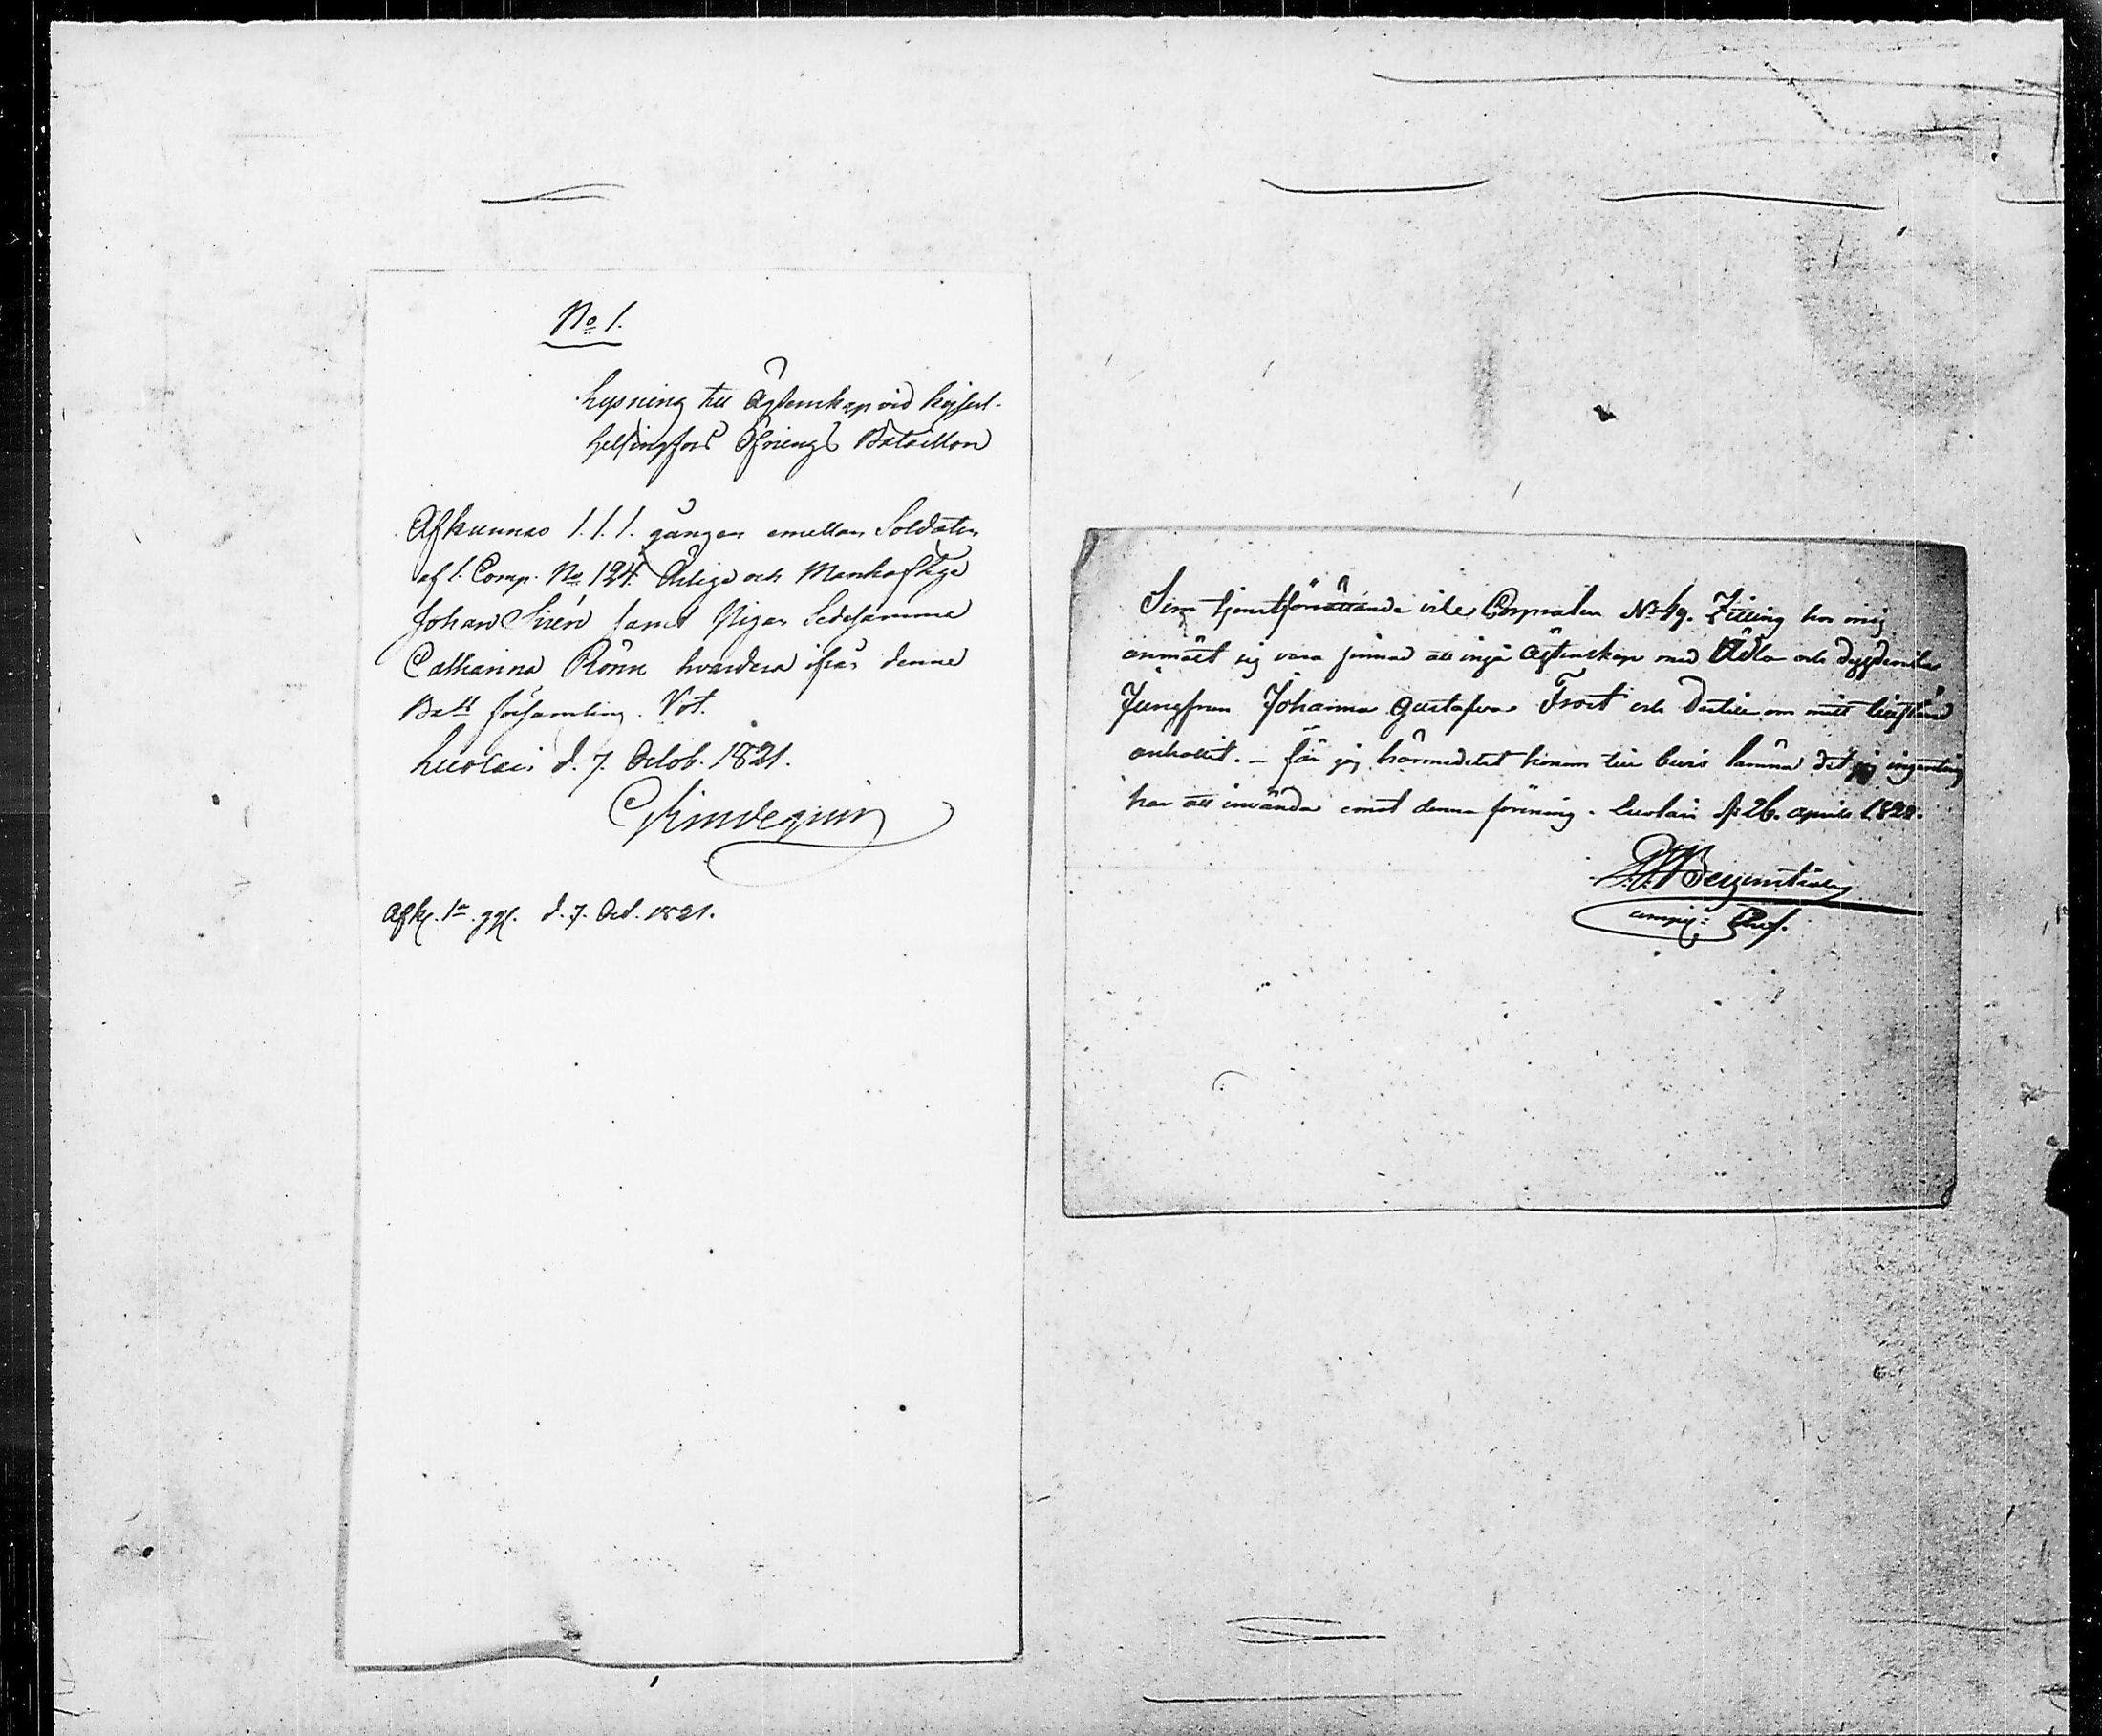 No 1.
Lysning till Ägtenskap vid Kejserl.
Helsingfors Öfnings Bataillon
Afkunnas 1.1.1. gången emellan Soldaten
af 1. Comp. No 124. Ärlige och Manhaftige
Johan Sirén samt Pigan Sedesamma
Catharina Rönn hvardera ifrån denne
Batts församling. Vot.
d. 7. Octob. 1821.
Afk. 1a gg. d. 7. Oct. 1821.
Som tjenstförrättande vice Corporalen No 49. Zilling hos mig
anmält sig vara sinnad att ingå Ägtenskap med Ädla och dygdersamma
Jungfrun Johanna Gustafva Frost och dertill om mitt
anhållit. – får jag härmedelst honom till bevis lämna det jag ingenting
har att invända emot denna förening. d. 26. april 1828.
Chef.